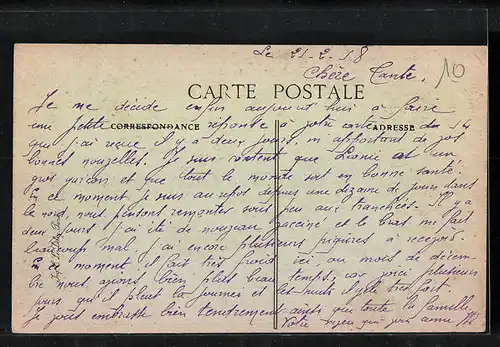 Le 21-2-18
10
Chère Tante,
CARTE POSTALE
Je me décide enfin aujourd'hui à faire
une petite réponse à votre carte du 14
CORRESPONDANCE
ADRESSE
que j'ai reçue il y a deux jours, m'apportant de
bonnes nouvelles. Je suis content que est un
gros garçon et que tout le monde soit en bonne santé.
En ce moment je suis au repos depuis une dizaine de jours dans
le nord, nous pensons remonter sous peu aux tranchées. Il y a
deux jours j'ai été de nouveau vacciné et le bras me fait
beaucoup mal, j'ai encore plusieurs piqûres à recevoir.
En ce moment il fait très froid ici, au mois de décem-
bre nous avons bien plus beau temps, car voici plusieurs
jours qu'il pleut la journée et les nuits il gèle bien fort.
Je vous embrasse bien tendrement ainsi que toute la famille
Votre neveu qui vous aime